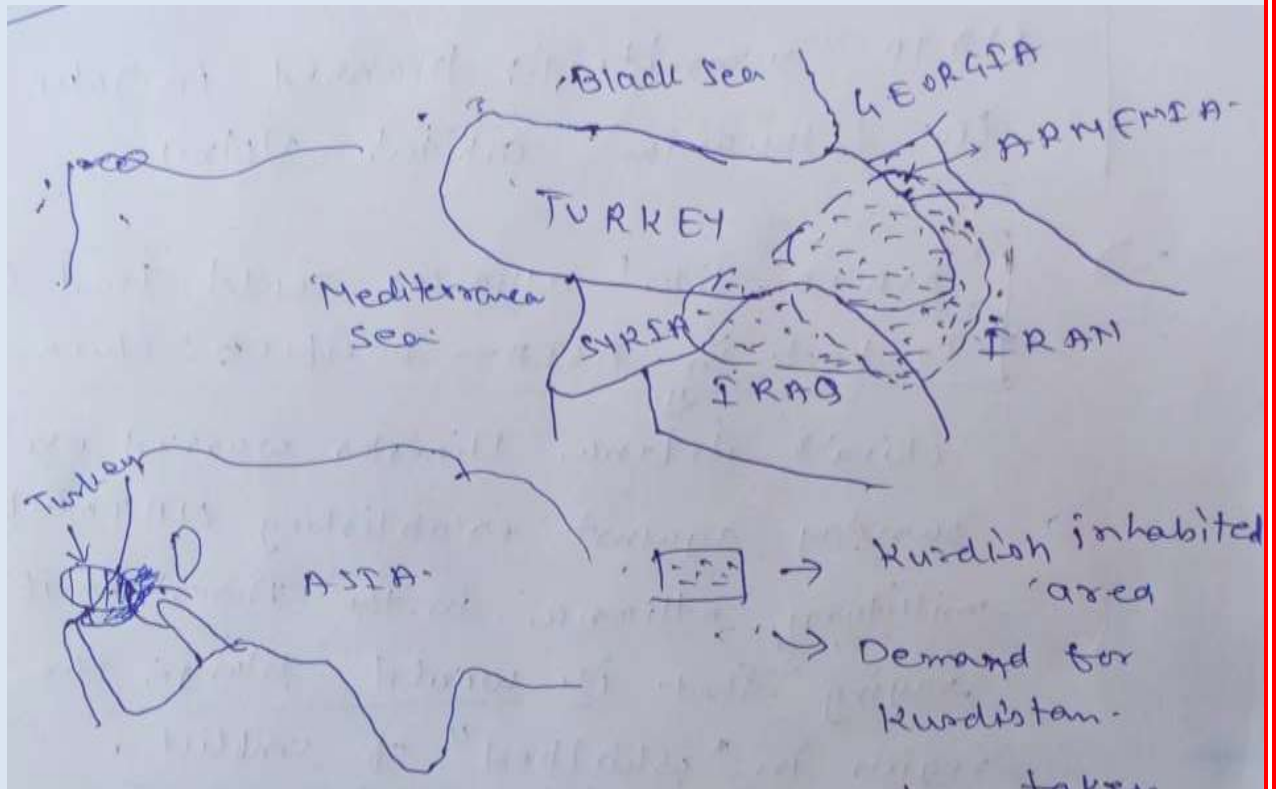 Black Sea
GEORGIA
ARMEMIA-
TURKEY
Mediterranea
Sea
SYRIA
IRAN
IRAQ
Turkey
ASIA-
→ Kurdish inhabited
area
→ Demand for
Kurdistan-
taken